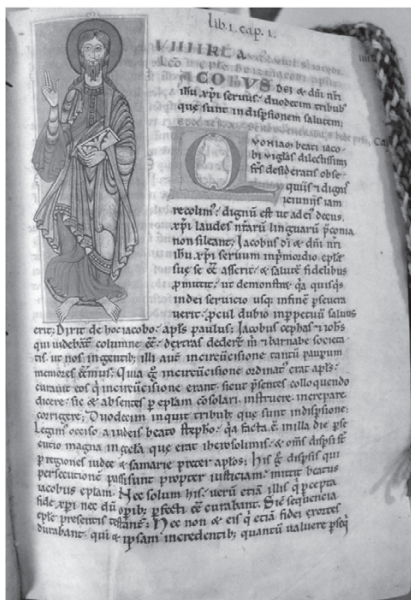 lib. 1. cap. 1.
ACOBVS dei & dñi nri
ihu xpi seruus duodecim tribub'
que sunt in dispsione salutem;
QVONIAM beati iaco
bi vigilias dilectissimi
frs desideratis obse
quiis & dignis
ieiuniis iam
recolim'; dignū est ut ad ei' decus.
xpi laudes nr̄arū linguarū p̄conia
non sileant. Iacobus dī & dñi nri
ihu xpi seruum in primordio eple
sue se eē asserit. & salutē fidelibus
p̄mittit. ut demonstret q̄a quisq̄s
in dei seruicio usq; in finē p̄seuera
uerit. p̄cul dubio in p̄petuū saluus
erit; Dixit de hoc iacobo. apls paulus; Iacobus cephas & iohs
qui uidebāt̄ columne eē. dextras dederē m & barnabe societa
tis. ut nos in gentib; illi aut̄ in circūcisione tantū paupum
memores eēmus; Quia ḡ in circūcisione ordinat' erat apls.
curauit eos q̄ in circūcisione erant. sicut p̄sentes colloquendo
docere. sic & absentes p̄ eplam cōsolari. instruere. increpare.
corrigere; Duodecim inquit tribub; que sunt in dispsione;
Legim' occiso a iudeis beato stepho. q̄a facta ē. in illa die pse
cutio magna in ecc̄la que erat iherosolimis. & om̄s dispsi st̄
p̄ regiones iudee & samarie preter aplos; His ḡ dispsis qui
persecutionē passi sunt propter iusticiam. mittit beatus
iacobus eplam. Nec solum his. uerū etiā illis q̄ p̄cepta
fide xpi nec dū opib; p̄fecti eē curabant. Sic sequencia
eple presentis testant̄; Nec non & eis q̄ etiā fidei exortes
durabant. qui & ipsam in credentib; quantū ualuere p̄seq̄